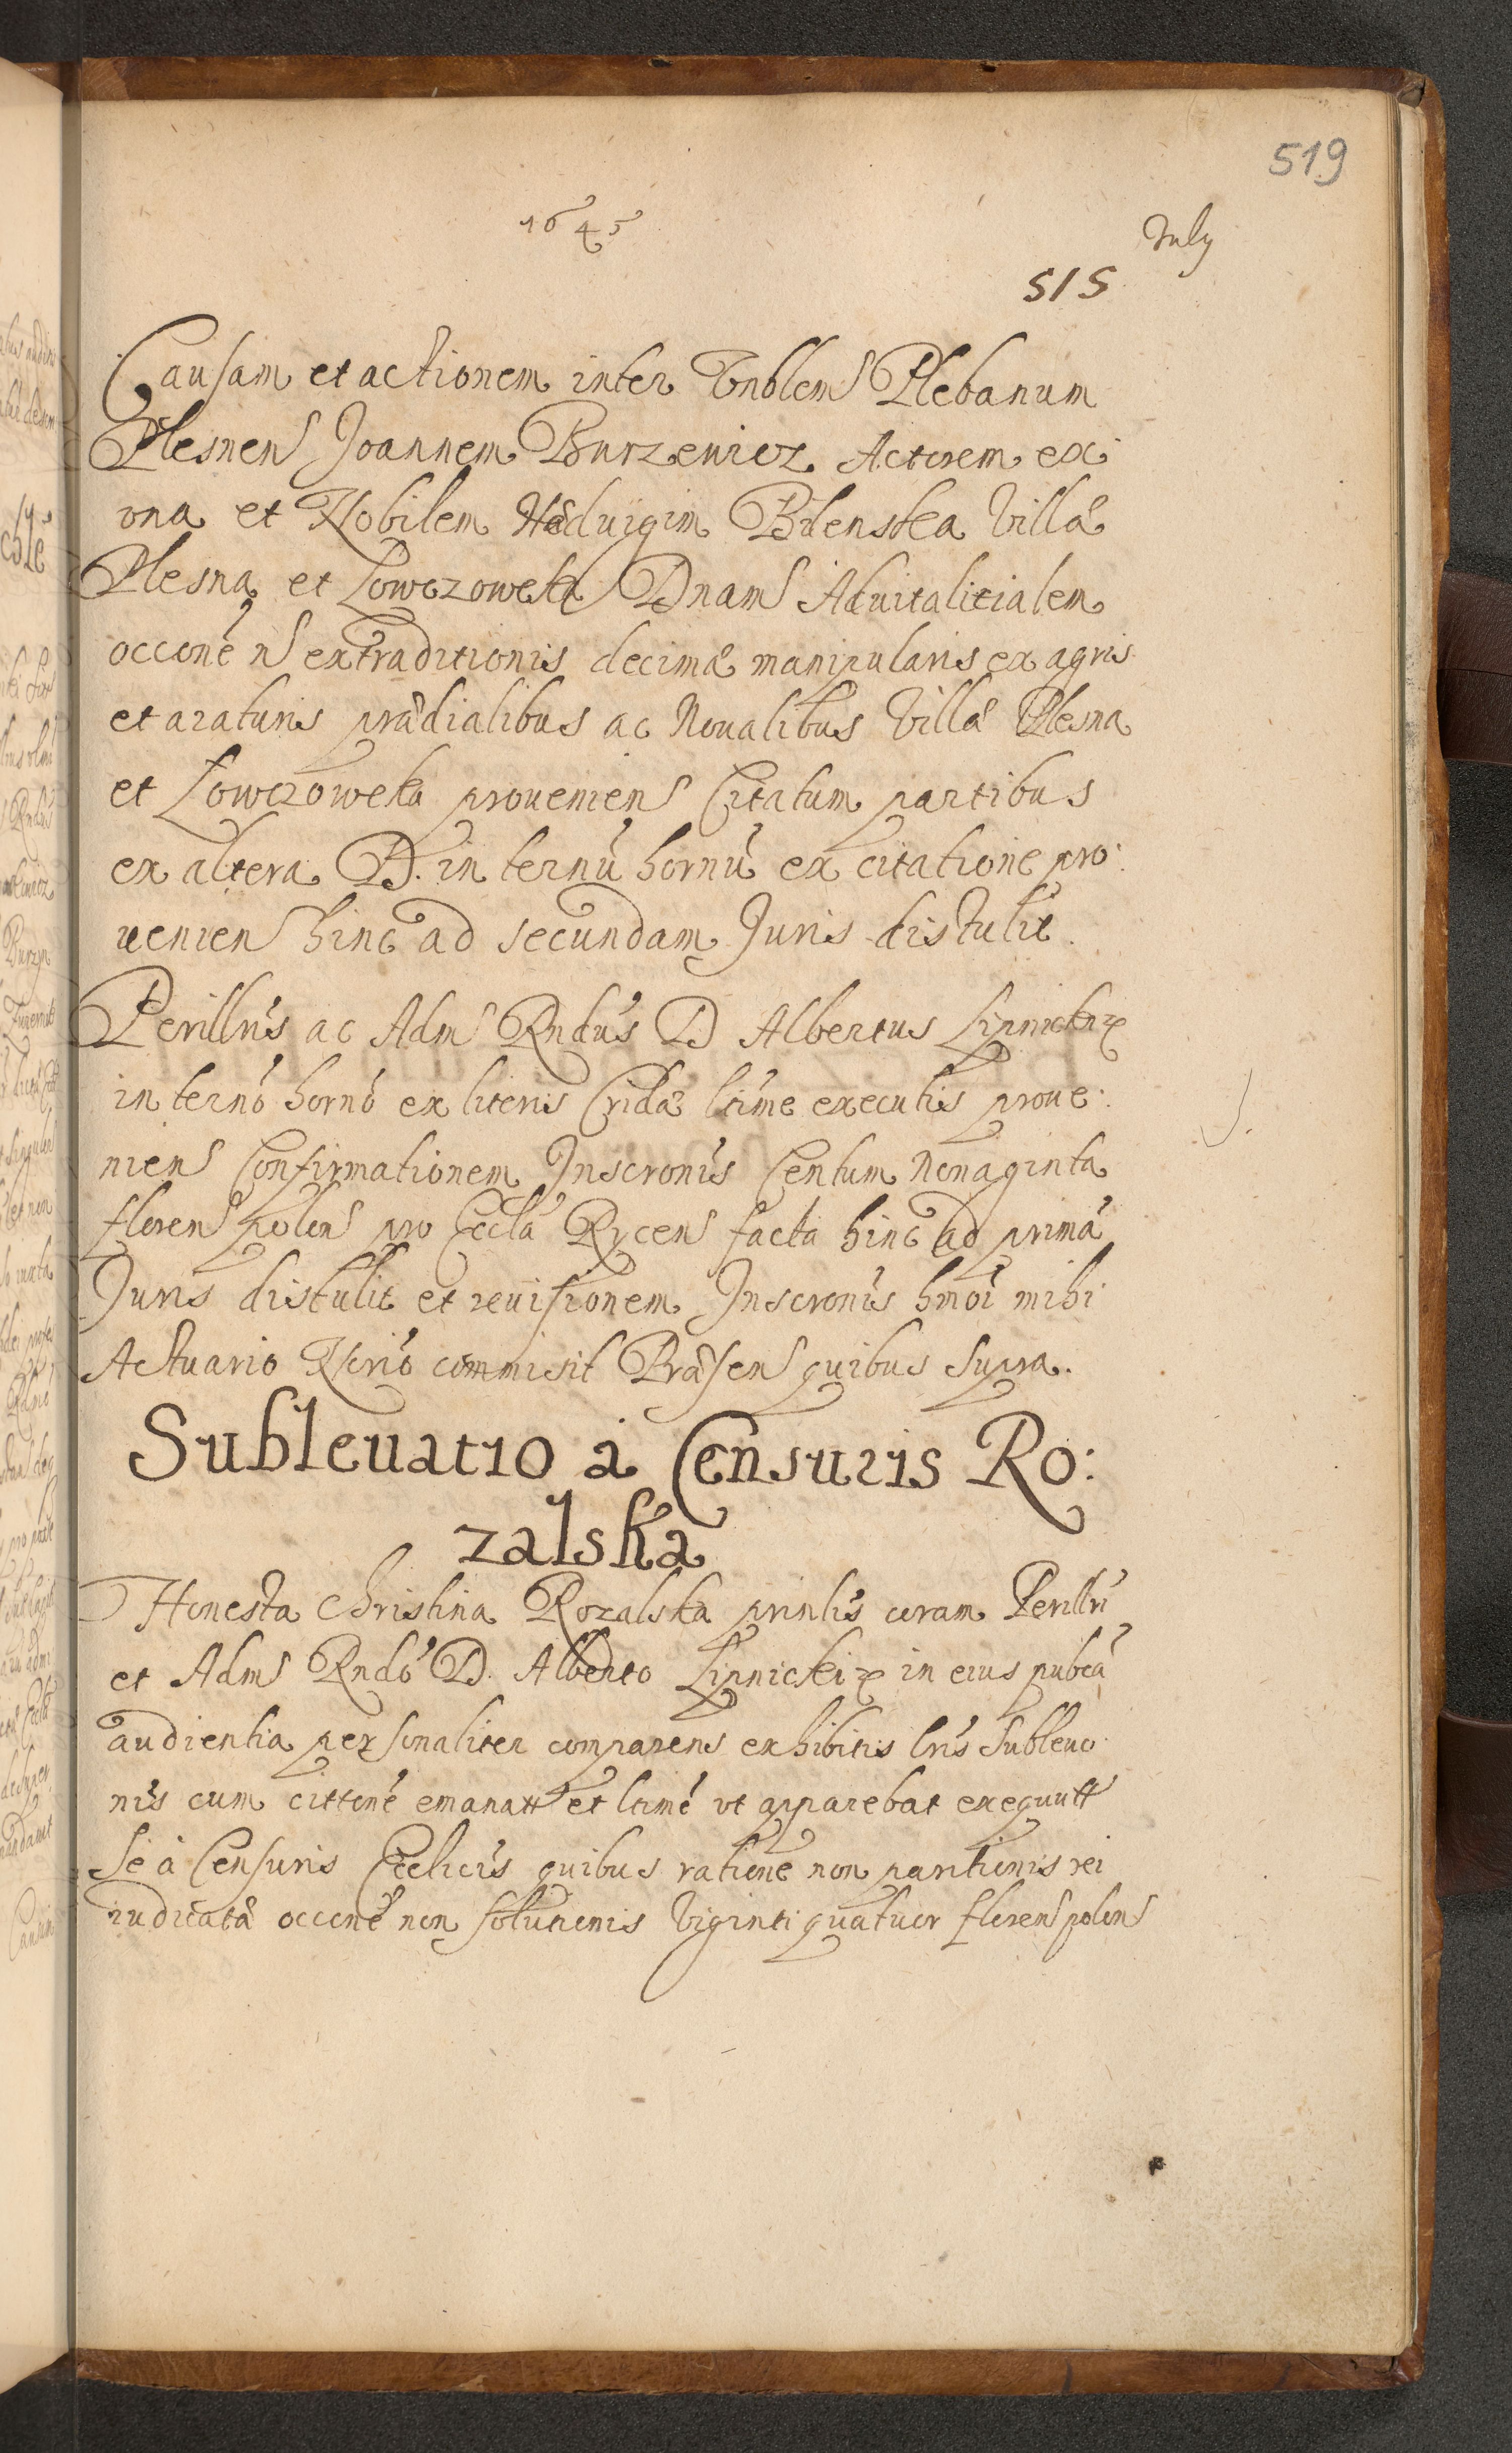 519
1645
July
515
Causam et actionem inter Vnblem Plebanum
Plesnen Joannem Burzewicz Actorem ex
vna et Nobilem Hæduigim Bilenska Villæ
Plesna et Lowczowek Dnam Aduitalitialem
occone n extraditionis decimæ manipularis ex agris
et araturis prædialibus ac Noualibus Villæ Plesna
et Lowczowka prouenien Citatam partibus
ex altera D. in ternu hornu ex citatione pro:
uenien hinc ad secundam Juris distulit.
Perillris ac Adm Rndus D Albertus Lipnicki
in terno horno ex literis Cridæ ltime executis proue:
nien Confirmationem Inscronis Centum Nonaginta
floren polon pro Eccla Rycen facta hinc ad prima
Juris distulit et reuisionem Inscronis hmoi mihi
Actuario Nrio commisit Præsen quibus supra.
Subleuatio à Censuris Ro:
zalska
Honesta Christina Rozalska prinlis coram Perillri
et Adm Rndo D. Alberto Lipnicki in eius pubca
audientia personaliter comparens exhibitis lris Subleuo
nis cum cittone emanatt et ltime vt apparebat exequutt
Se à Censuris Ecclicis quibus ratione non paritionis rei
iudicatæ occone non solutionis Viginti quatuor floren polon